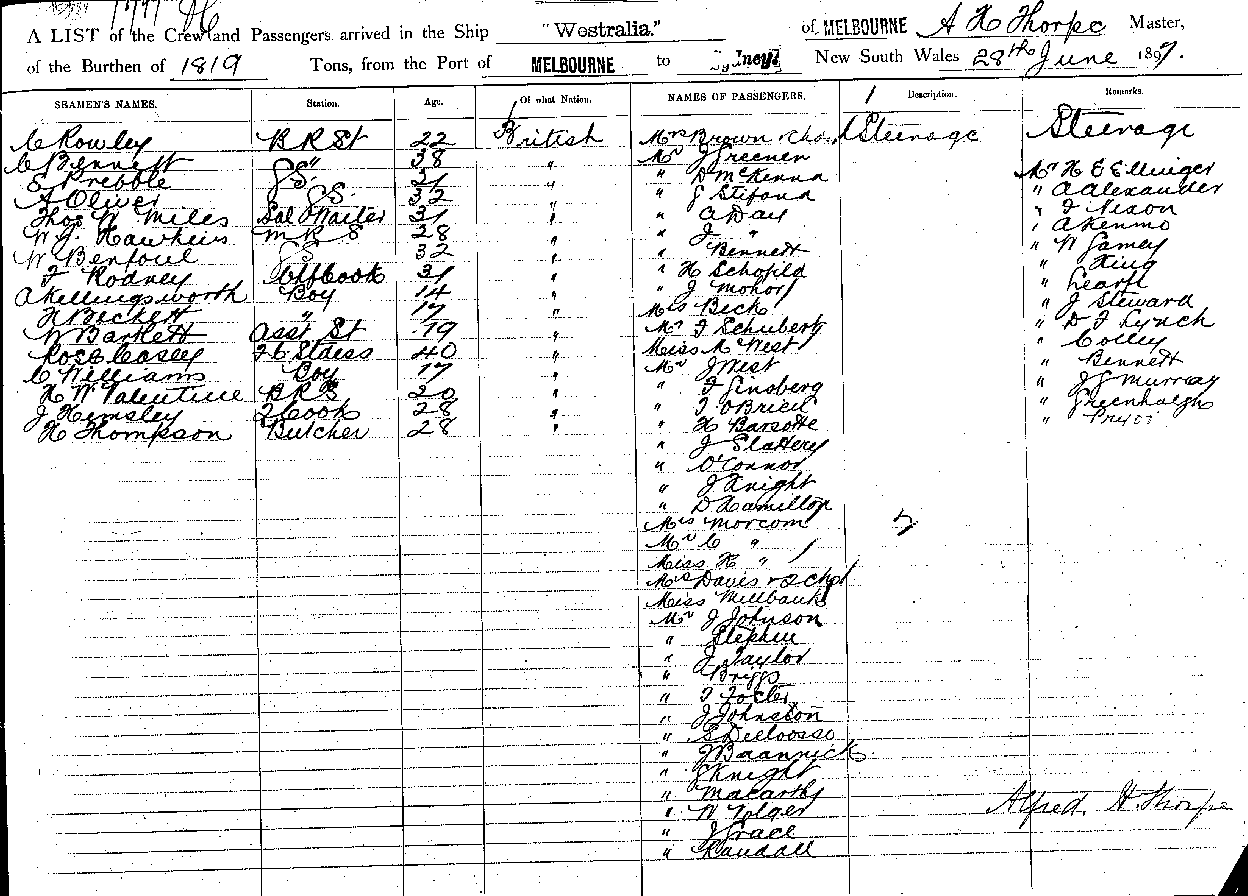 A LIST of the Crew and Passengers arrived in the Ship "Westralia." of MELBOURNE A H Thorpe Master,
of the Burthen of 1819 Tons, from the Port of MELBOURNE to Sydney New South Wales 28th June 1897.
SEAMEN'S NAMES. Station. Age. Of what Nation. NAMES OF PASSENGERS. Description. Remarks.
C Rowley B R St 22 British Mrs Brown & Steerage Steerage
C Bennett " 38 " Mr J Greener
E Prebble G.S. 21 " " D McKenna Mr H E Ellinger
A Oliver G.S. 32 " " G Stifond " A Alexander
Thos W Miles Sal Waiter 31 " " A Day " J Nixon
W J. Hawkins M R S 28 " " J " " A Kenmo
W Benfoul G S 32 " " Bennett " W Gamey
F Rodney Ch Cook 31 " " H Schofild " King
A Killingsworth Boy 14 " " J Mohor " Learn
H Beckett " 17 " Mrs Beck " J Steward
W Bartlett Asst St 19 " Mr F Schubert " D F Lynch
Rose Casey F C Stdess 40 " Miss M West " Colley
C Williams Boy 17 " Mr J West " Bennett
H W Valentine B R S 20 " " F Ginsberg " J J Murray
J Hemsley 2 Cook 28 " " T O'Brien " Greenhalgh
H Thompson Butcher 28 " " H Barsotte "
" J Slattery
" O'Connor
" J Knight
" D Hamilton
Mrs Morcom
Mr C "
Miss H "
Mrs Daves & 2 Chd
Miss Millbank
Mr J Johnson
" Stephen
" J Taylor
" Briggs
" T Foster
" J Johnston
" S Delloosso
" J Baannick
" J Knight
" Macarthy
" W Tolger
" J Grace
" Randall
Alfred. H. Thorpe